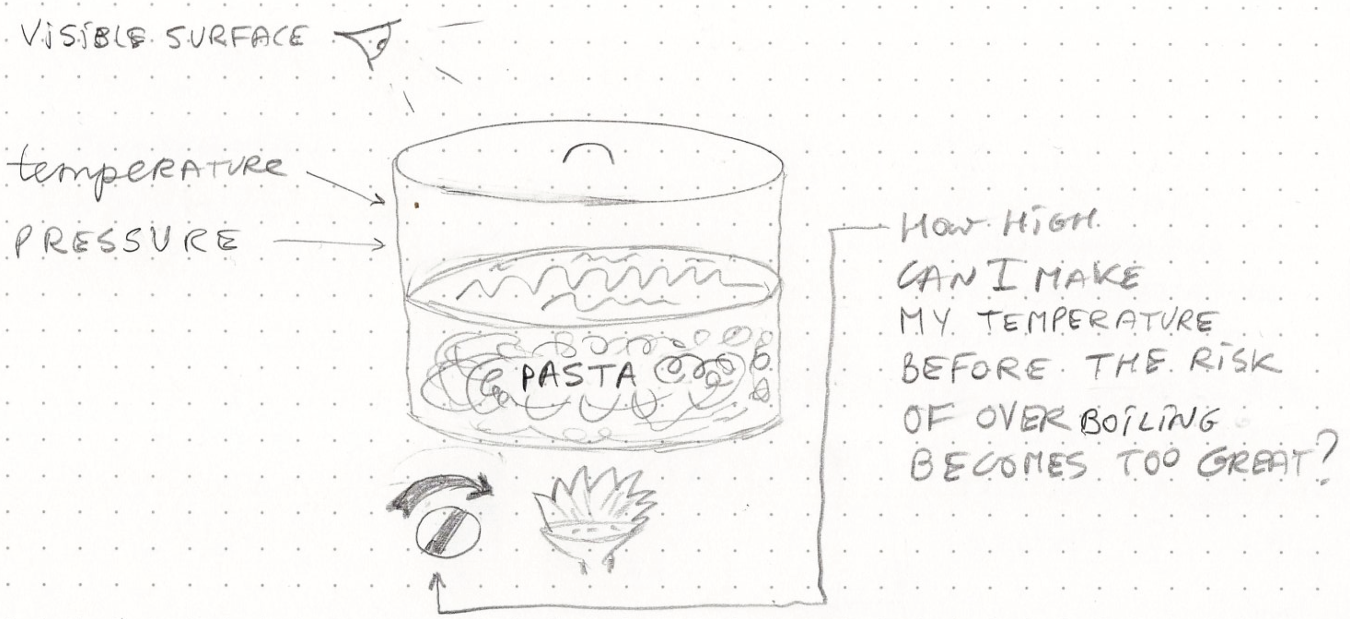 ViSiBLE SURFACE
temperATURe
PRESSURE
PASTA
How HiGH
CAN I MAKE
MY TEMPERATURE
BEFORE THE RiSK
OF OVER BOiLiNG
BECOMES TOO GREAT?